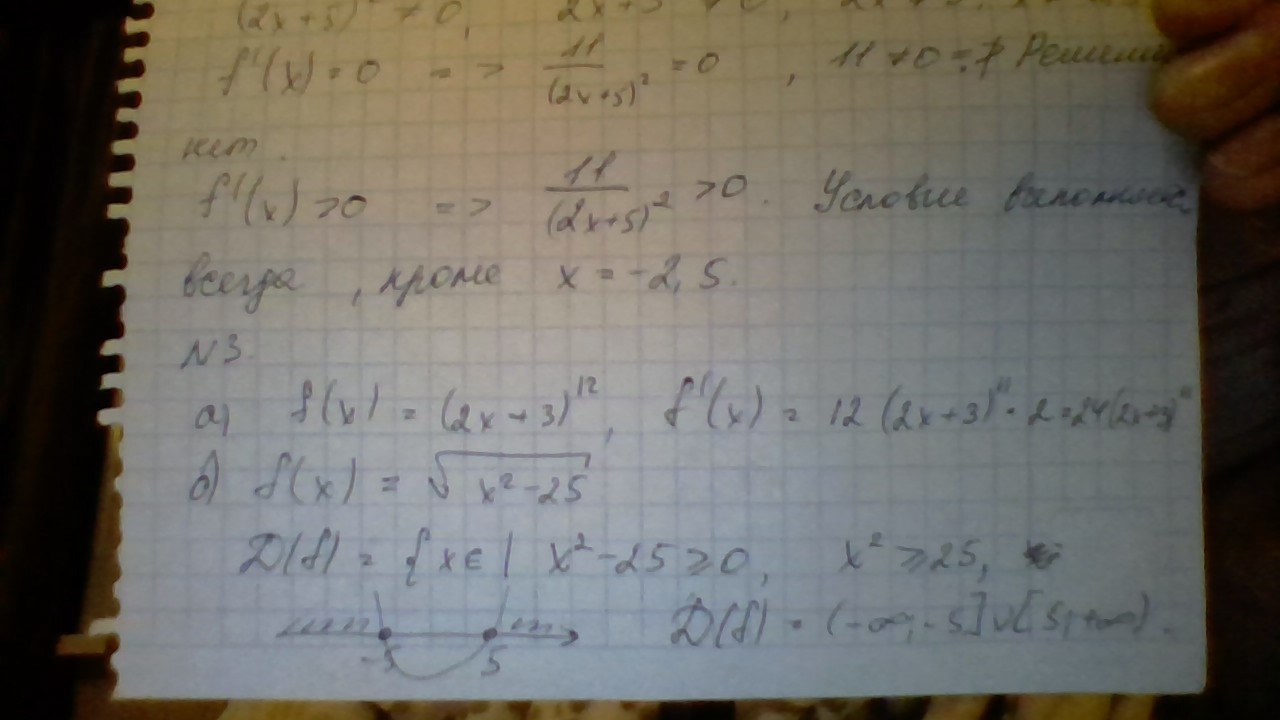 (2x+5)² ≠ 0,
f'(x) = 0 => 11/(2x+5)² = 0, 11 ≠ 0 => Решений
нет.
f'(x) > 0 => 11/(2x+5)² > 0. Условие
всегда, кроме x = -2,5.
N3.
а) f(x) = (2x+3)¹², f'(x) = 12(2x+3)¹¹·2=24(2x+3)¹¹
б) f(x) = √(x²-25)
D(f) = {x∈| x²-25≥0, x²≥25,
-5 5 D(f) = (-∞,-5]∪[5,+∞).